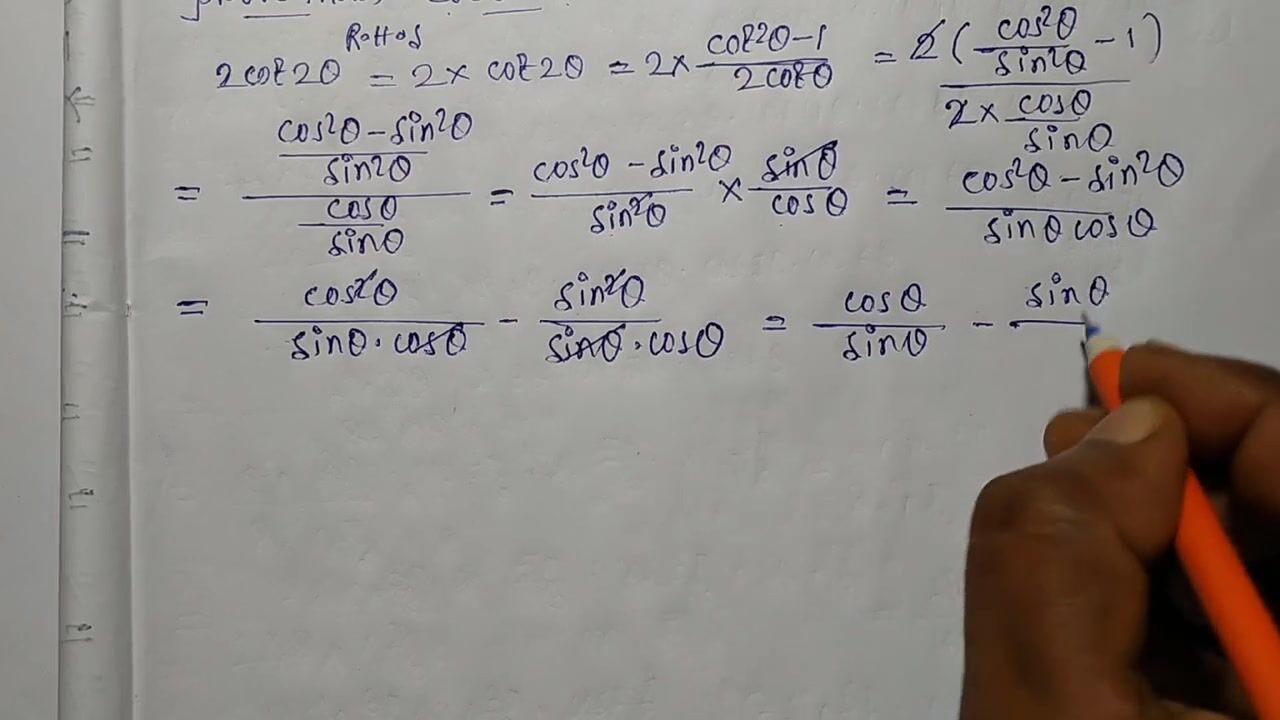 R.H.S
2cot2θ = 2 × cot2θ = 2 × (cot²θ − 1)/(2cotθ) = 2(cos²θ/sin²θ − 1)/(2 × cosθ/sinθ)
= ((cos²θ − sin²θ)/sin²θ)/(cosθ/sinθ) = (cos²θ − sin²θ)/sin²θ × sinθ/cosθ = (cos²θ − sin²θ)/(sinθ cosθ)
= cos²θ/(sinθ · cosθ) − sin²θ/(sinθ · cosθ) = cosθ/sinθ − sinθ/